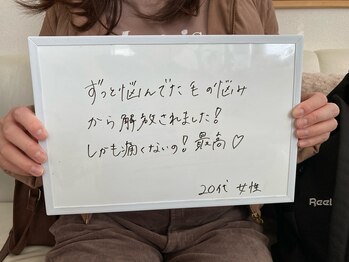 ずっと悩んでた毛の悩み
から解放されました!
しかも痛くないの!最高♡
20代 女性
Reel